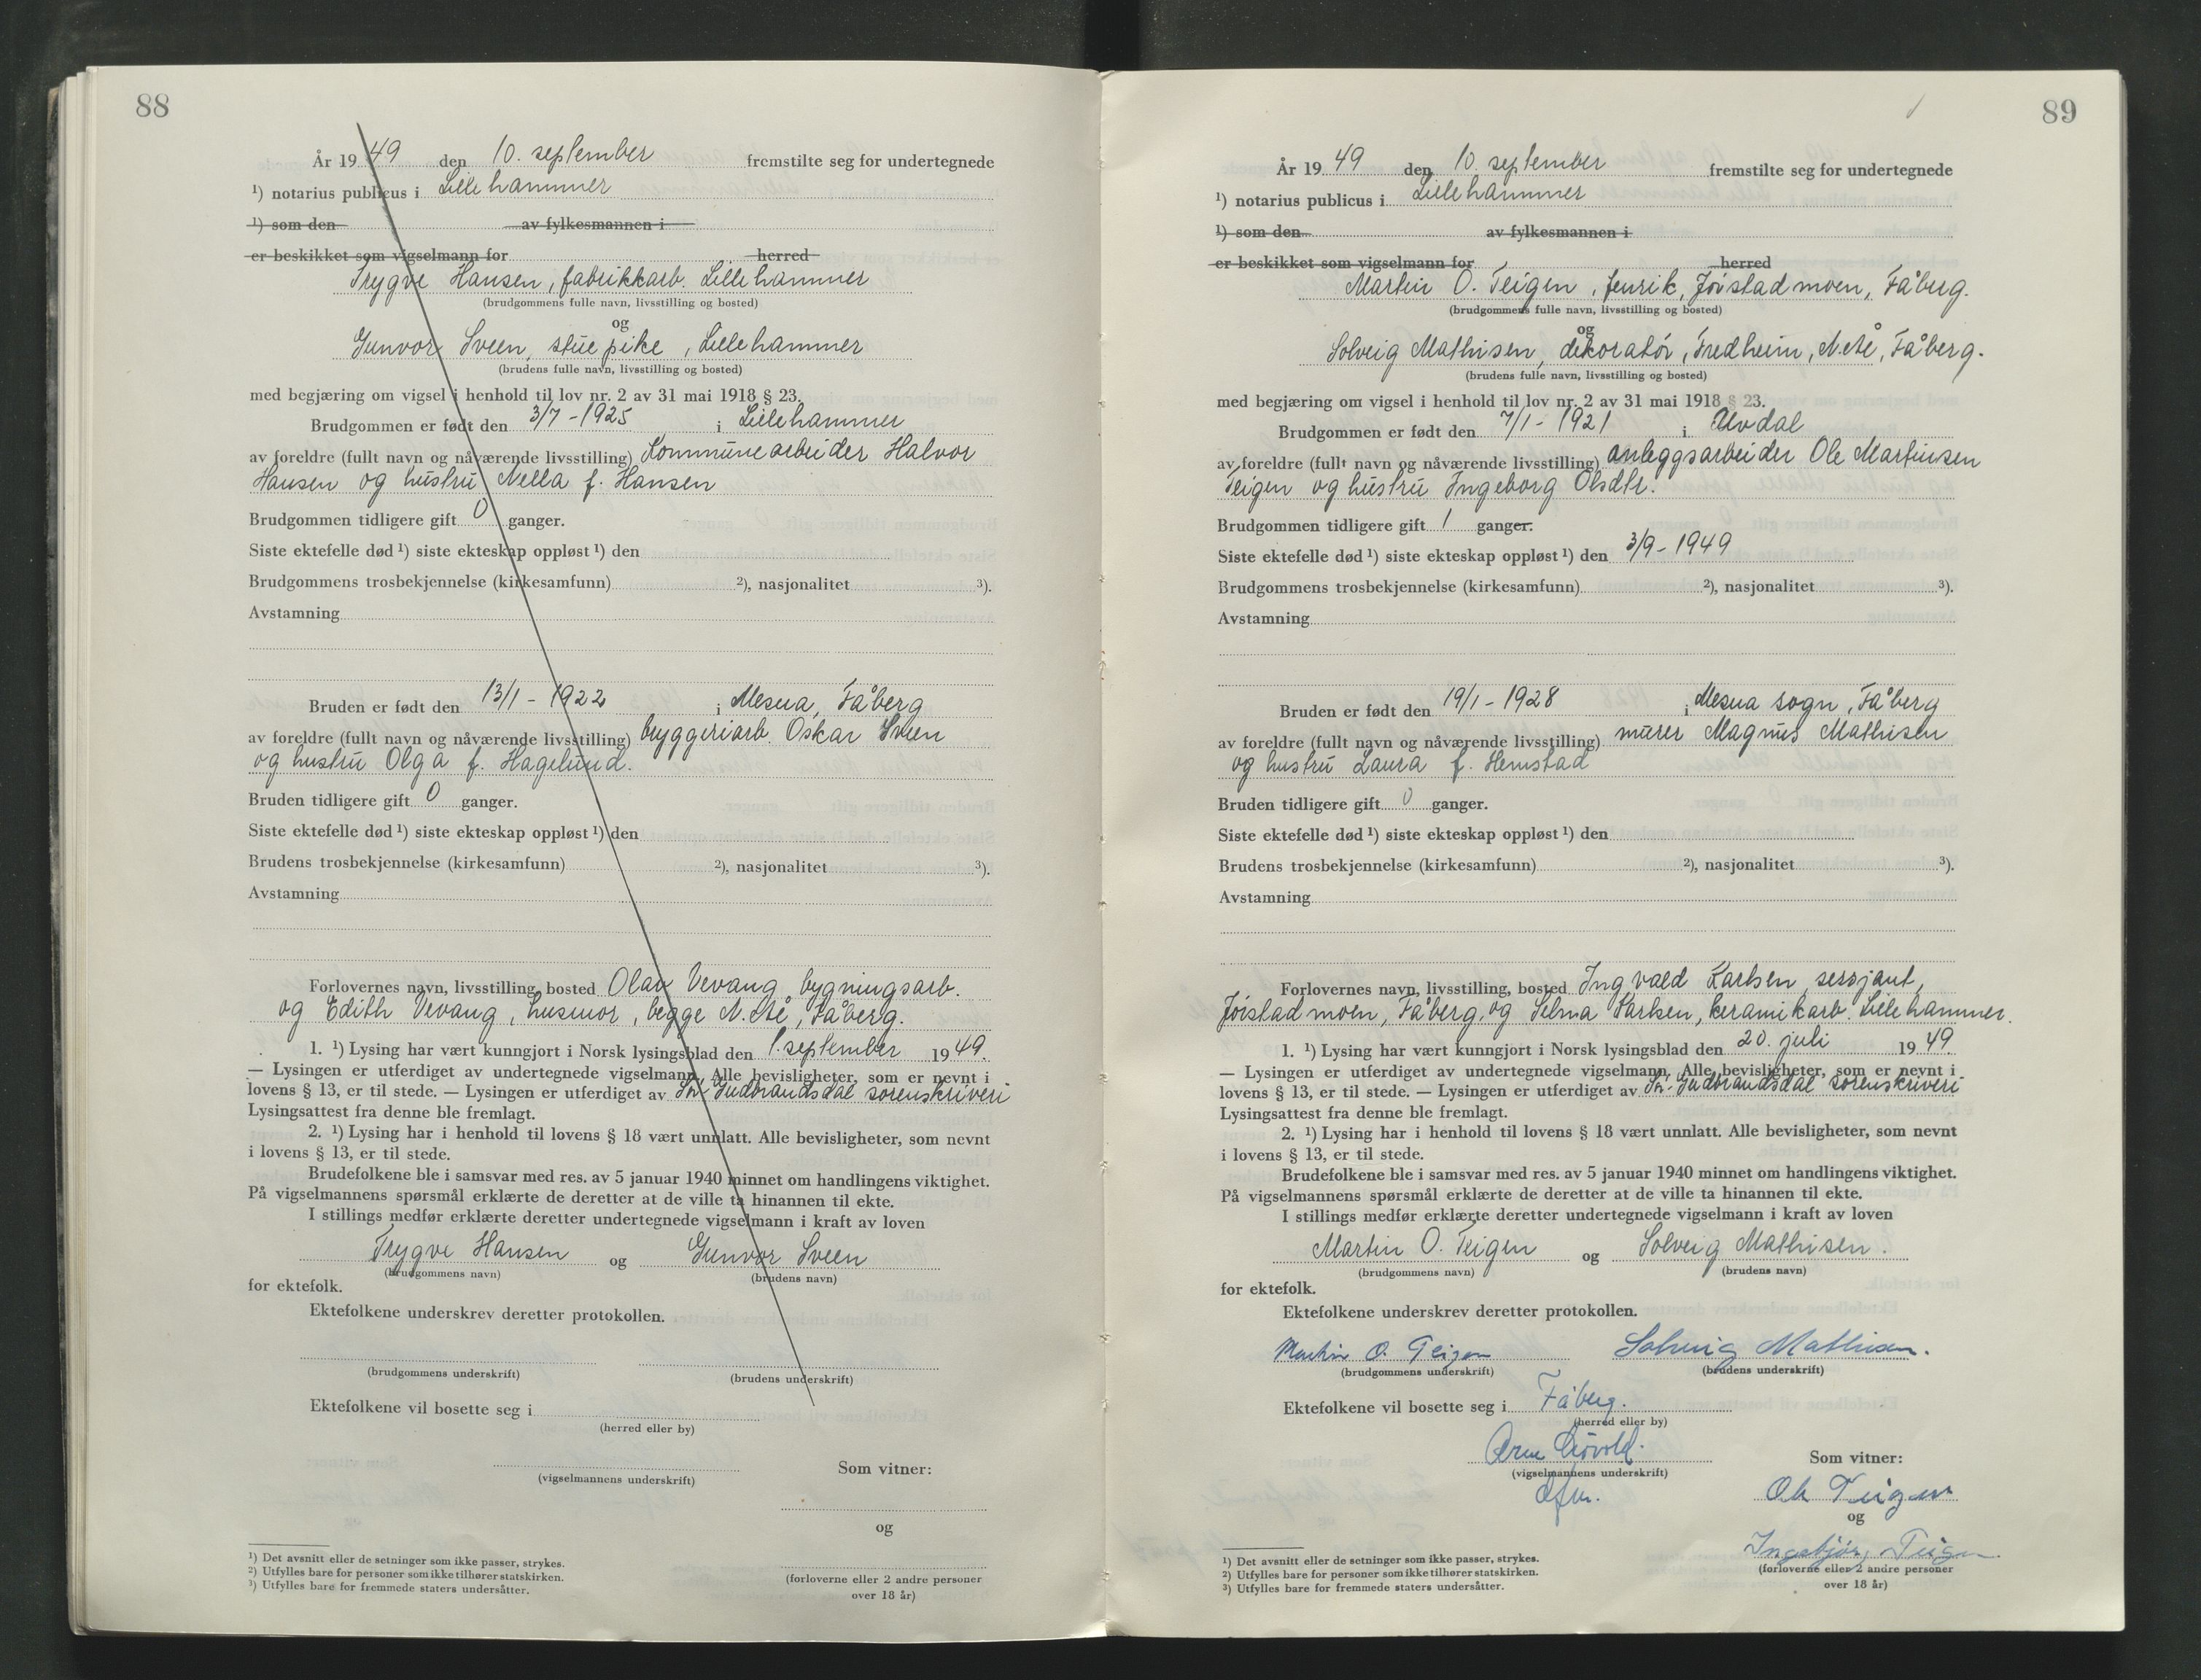 88
År 19 49 den 10. september fremstilte seg for undertegnede
¹) notarius publicus i Lillehammer
¹) som den av fylkesmannen i
er beskikket som vigselmann for herred
Trygve Hansen, fabrikkarb. Lillehammer
(brudgommens fulle navn, livsstilling og bosted)
og
Gunvor Sveen, stuepike, Lillehammer
(brudens fulle navn, livsstilling og bosted)
med begjæring om vigsel i henhold til lov nr. 2 av 31 mai 1918 § 23.
Brudgommen er født den 3/7 - 1925 i Lillehammer
av foreldre (fullt navn og nåværende livsstilling) Kommunearbeider Halvor
Hansen og hustru Nella f. Hansen
Brudgommen tidligere gift 0 ganger.
Siste ektefelle død ¹) siste ekteskap oppløst ¹) den
Brudgommens trosbekjennelse (kirkesamfunn) ²), nasjonalitet ³).
Avstamning
Bruden er født den 13/1 - 1922 i Mesna, Fåberg
av foreldre (fullt navn og nåværende livsstilling) bryggeriarb. Oskar Sveen
og hustru Olga f. Hagelund.
Bruden tidligere gift 0 ganger.
Siste ektefelle død ¹) siste ekteskap oppløst ¹) den
Brudens trosbekjennelse (kirkesamfunn) ²), nasjonalitet ³).
Avstamning
Forlovernes navn, livsstilling, bosted Olav Vevang, bygningsarb.
og Edith Vevang, husmor, begge N.Ål, Fåberg.
1. ¹) Lysing har vært kunngjort i Norsk lysingsblad den 1. september 19 49.
— Lysingen er utferdiget av undertegnede vigselmann. Alle bevisligheter, som er nevnt i
lovens § 13, er til stede. — Lysingen er utferdiget av Sør-Gudbrandsdal sorenskriveri
Lysingsattest fra denne ble fremlagt.
2. ¹) Lysing har i henhold til lovens § 18 vært unnlatt. Alle bevisligheter, som nevnt
i lovens § 13, er til stede.
Brudefolkene ble i samsvar med res. av 5 januar 1940 minnet om handlingens viktighet.
På vigselmannens spørsmål erklærte de deretter at de ville ta hinannen til ekte.
I stillings medfør erklærte deretter undertegnede vigselmann i kraft av loven
Trygve Hansen og Gunvor Sveen
(brudgommens navn) (brudens navn)
for ektefolk.
Ektefolkene underskrev deretter protokollen.
(brudgommens underskrift) (brudens underskrift)
Ektefolkene vil bosette seg i
(herred eller by)
(vigselmannens underskrift)
Som vitner:
og
(forloverne eller 2 andre personer
over 18 år)
¹) Det avsnitt eller de setninger som ikke passer, strykes.
²) Utfylles bare for personer som ikke tilhører statskirken.
³) Utfylles bare for fremmede staters undersåtter.
89
År 19 49 den 10. september fremstilte seg for undertegnede
¹) notarius publicus i Lillehammer
¹) som den av fylkesmannen i
er beskikket som vigselmann for herred
Martin O. Teigen, fenrik, Jørstadmoen, Fåberg.
(brudgommens fulle navn, livsstilling og bosted)
og
Solveig Mathisen, dekoratør, Fredheim, N.Ål, Fåberg.
(brudens fulle navn, livsstilling og bosted)
med begjæring om vigsel i henhold til lov nr. 2 av 31 mai 1918 § 23.
Brudgommen er født den 7/1 - 1921 i Uvdal
av foreldre (fullt navn og nåværende livsstilling) anleggsarbeider Ole Martinsen
Teigen og hustru Ingeborg Olsdtr.
Brudgommen tidligere gift 1 ganger.
Siste ektefelle død ¹) siste ekteskap oppløst ¹) den 3/9 - 1949
Brudgommens trosbekjennelse (kirkesamfunn) ²), nasjonalitet ³).
Avstamning
Bruden er født den 19/1 - 1928 i Mesna sogn, Fåberg
av foreldre (fullt navn og nåværende livsstilling) murer Magnus Mathisen
og hustru Laura f. Hemstad
Bruden tidligere gift 0 ganger.
Siste ektefelle død ¹) siste ekteskap oppløst ¹) den
Brudens trosbekjennelse (kirkesamfunn) ²), nasjonalitet ³).
Avstamning
Forlovernes navn, livsstilling, bosted Ingvald Karlsen, sersjant,
Jørstadmoen, Fåberg, og Selma Karlsen, keramikarb. Lillehammer.
1. ¹) Lysing har vært kunngjort i Norsk lysingsblad den 20. juli 19 49.
— Lysingen er utferdiget av undertegnede vigselmann. Alle bevisligheter, som er nevnt i
lovens § 13, er til stede. — Lysingen er utferdiget av Sør-Gudbrandsdal sorenskriveri
Lysingsattest fra denne ble fremlagt.
2. ¹) Lysing har i henhold til lovens § 18 vært unnlatt. Alle bevisligheter, som nevnt
i lovens § 13, er til stede.
Brudefolkene ble i samsvar med res. av 5 januar 1940 minnet om handlingens viktighet.
På vigselmannens spørsmål erklærte de deretter at de ville ta hinannen til ekte.
I stillings medfør erklærte deretter undertegnede vigselmann i kraft av loven
Martin O. Teigen og Solveig Mathisen.
(brudgommens navn) (brudens navn)
for ektefolk.
Ektefolkene underskrev deretter protokollen.
Martin O. Teigen Solveig Mathisen.
(brudgommens underskrift) (brudens underskrift)
Ektefolkene vil bosette seg i Fåberg.
(herred eller by)
(vigselmannens underskrift)
Som vitner:
Ole Teigen
og
Ingebjør Teigen
(forloverne eller 2 andre personer
over 18 år)
¹) Det avsnitt eller de setninger som ikke passer, strykes.
²) Utfylles bare for personer som ikke tilhører statskirken.
³) Utfylles bare for fremmede staters undersåtter.